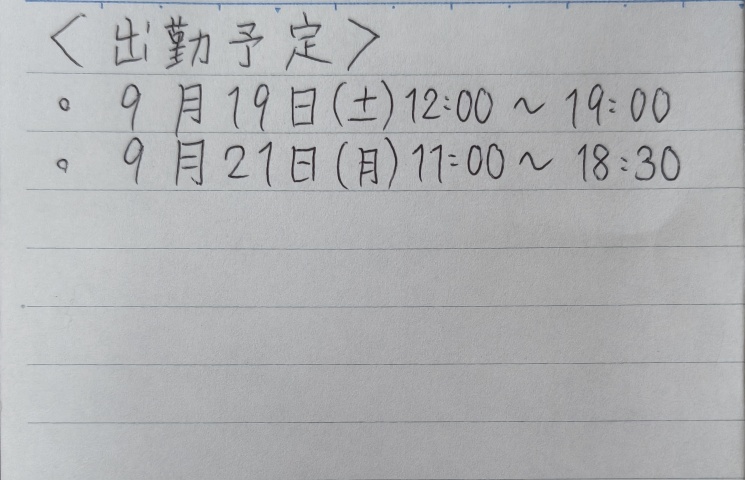 <出勤予定>
。 9月19日(土)12:00 ~ 19:00
。 9月21日(月)11:00 ~ 18:30